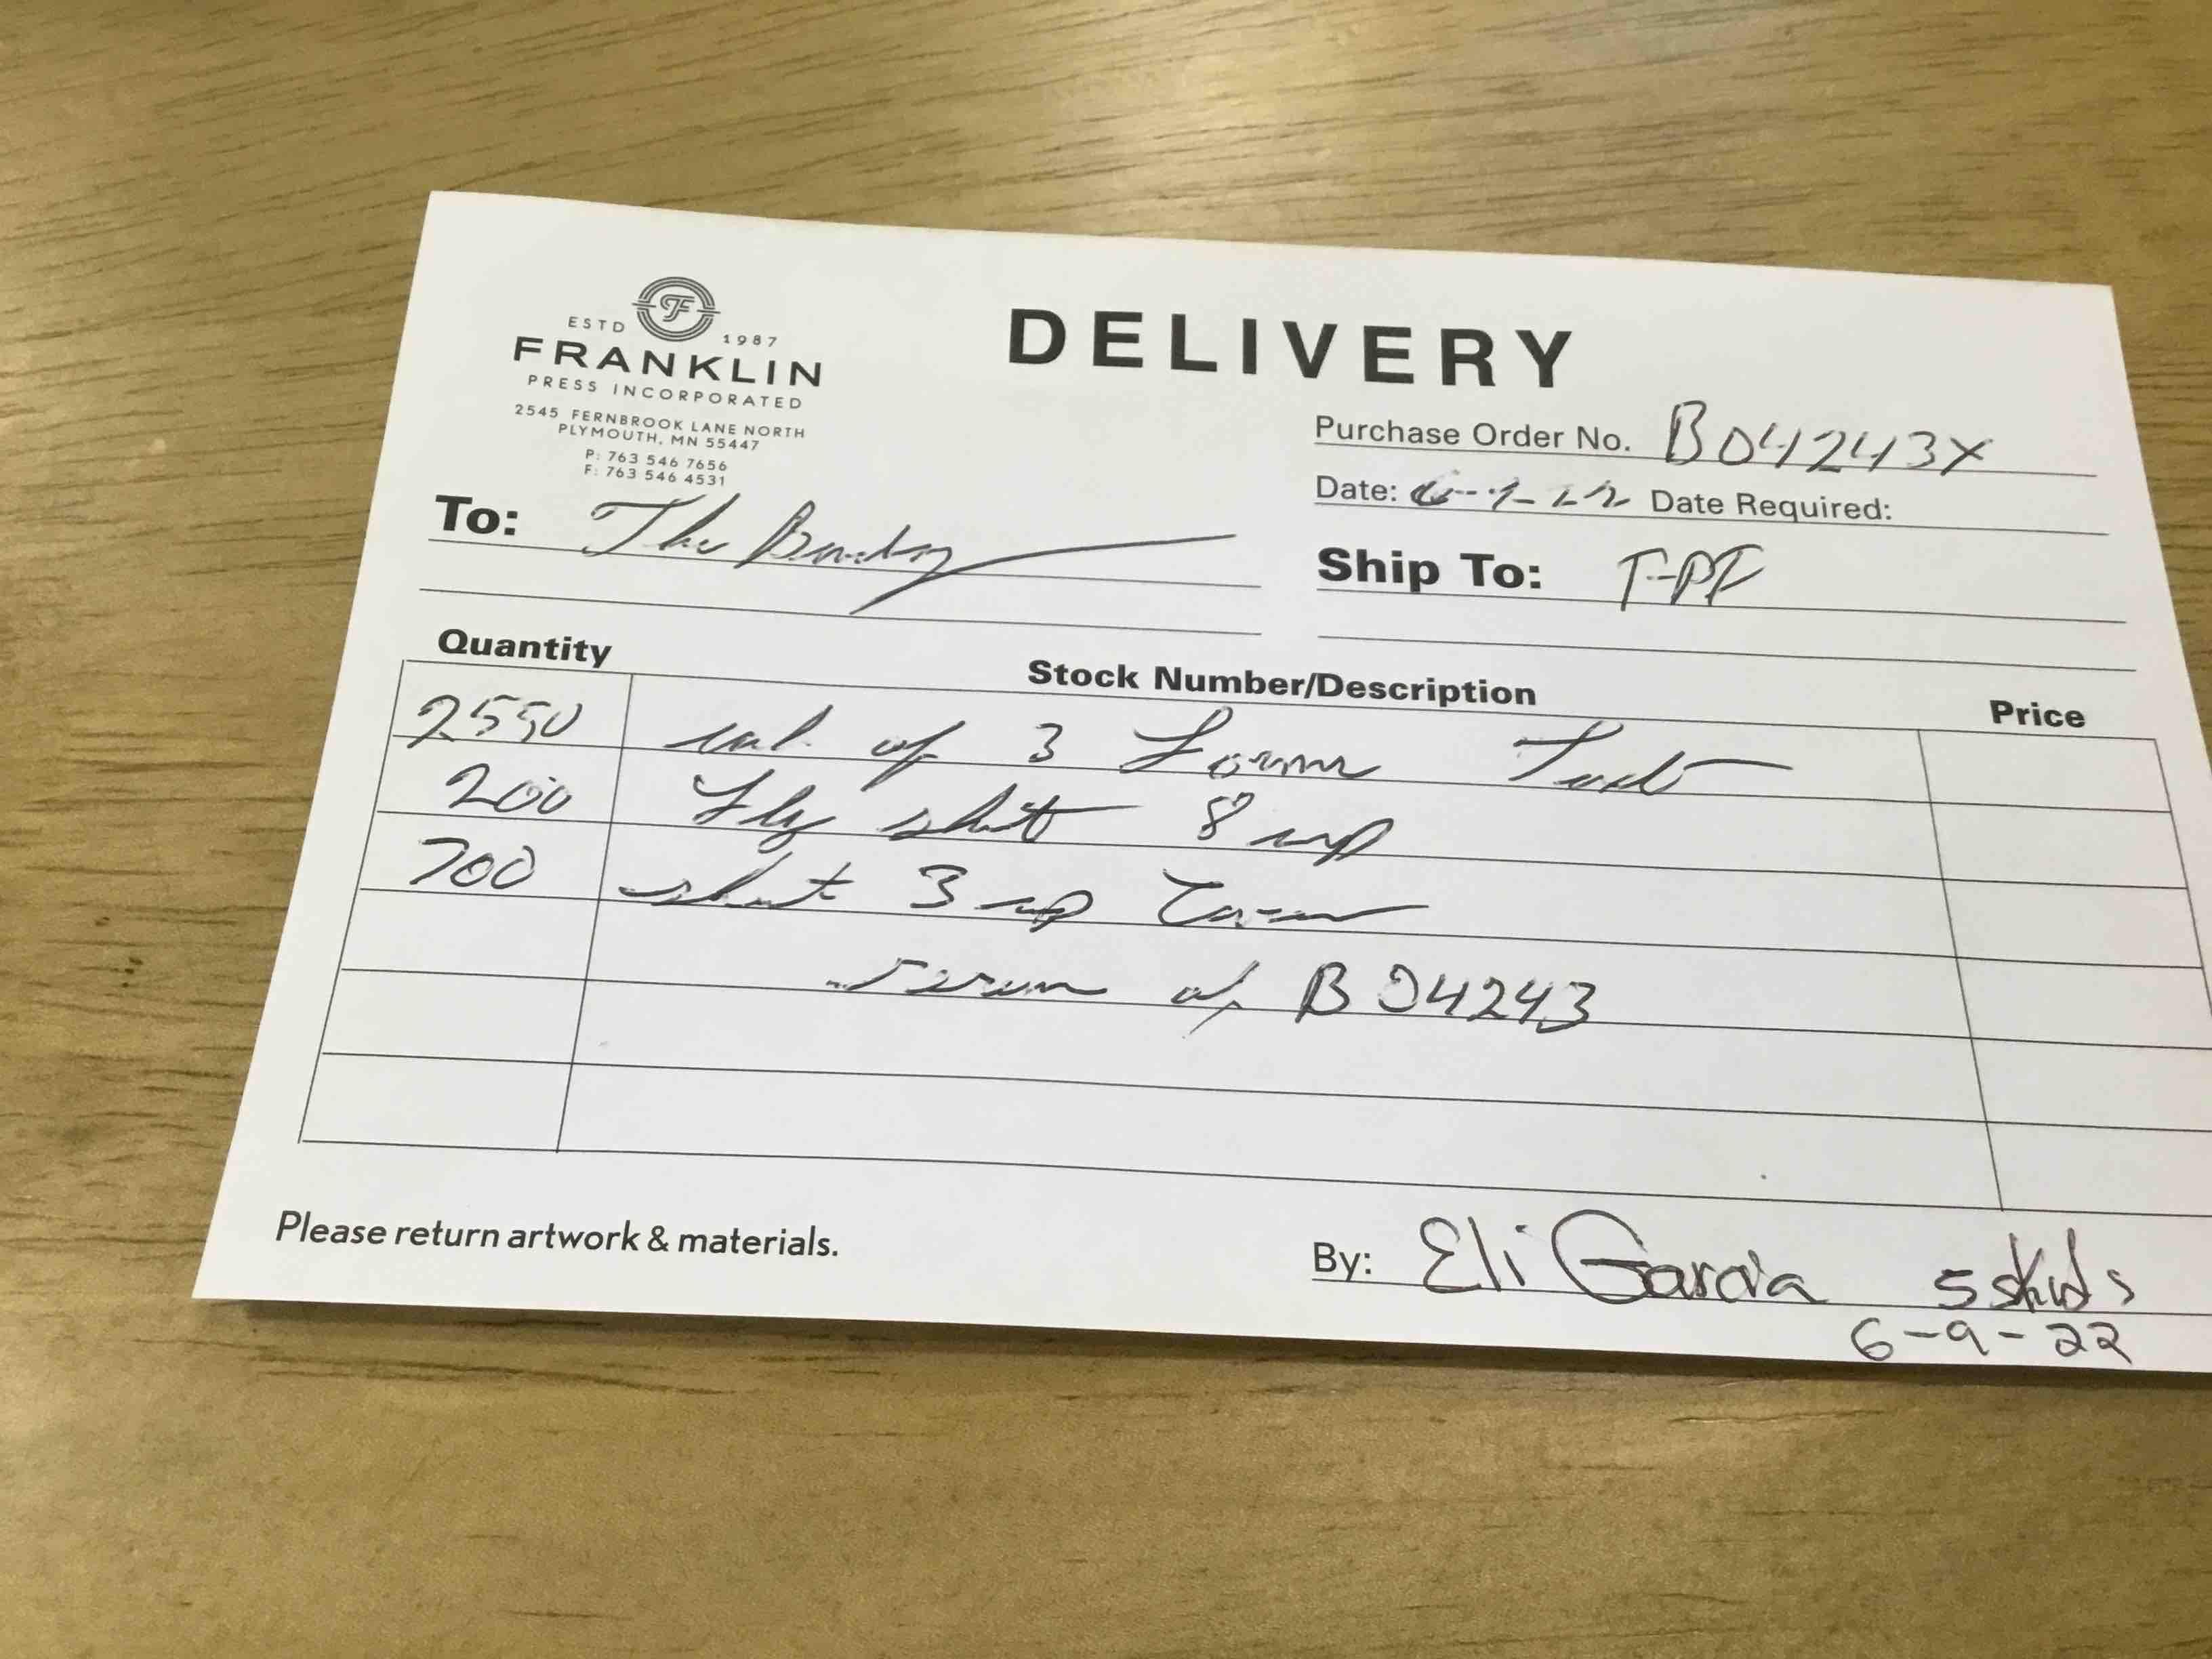 ESTD 1987
FRANKLIN
PRESS INCORPORATED
2545 FERNBROOK LANE NORTH
PLYMOUTH, MN 55447
P: 763 546 7656
F: 763 546 4531
DELIVERY
Purchase Order No. B04243X
Date: Date Required:
To: The
Ship To:
Quantity Stock Number/Description Price
2550 of 3 Form
200 Fly sheet 8 up
700 sheet 3 up
rerun of B04243
Please return artwork & materials.
By: Eli Garcia 5 skids
6-9-22